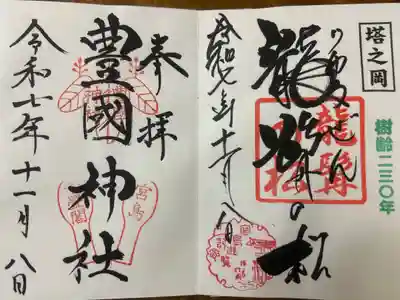 塔之岡
りゅうぜん
龍髯の松
龍髯
の松
樹齢二三〇年
令和七年十一月八日
奉拝
豊國神社
宮島
令和七年十一月八日